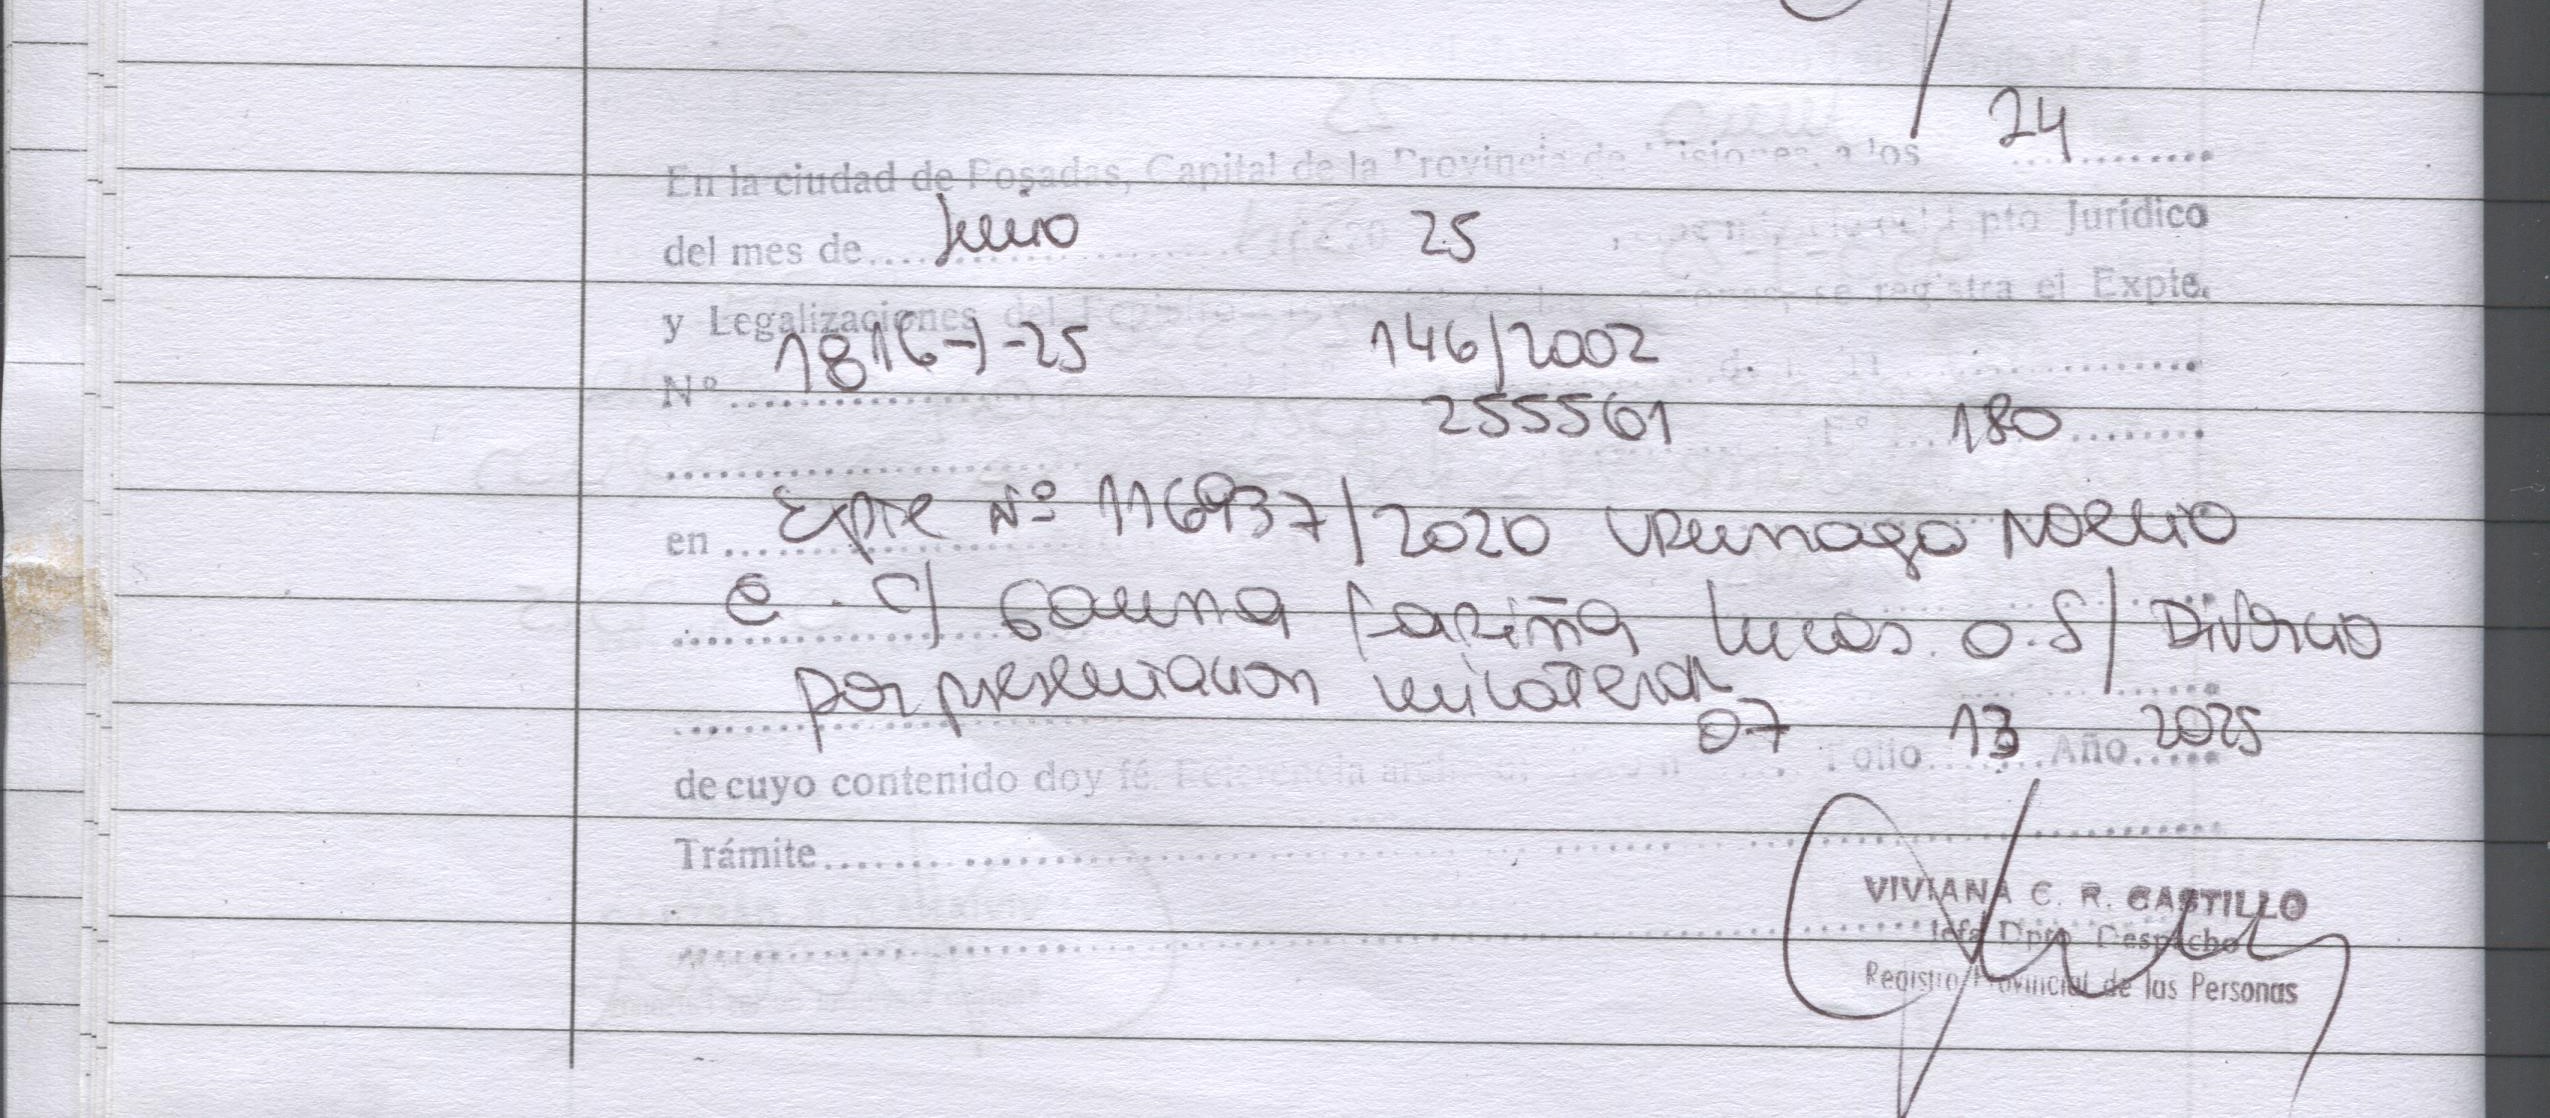 24
En la ciudad de Posadas, Capital de la Provincia de Misiones, a los ............
del mes de.... Junio 25 Dpto Jurídico
y Legalizaciones del Registro se registra el Expte.
1816-J-25 146/2002
Nº ............
255561 Fº 180
en ... Expte Nº 116937/2020 Noelia
E. C/ Gauna Fariña Lucas. O. S/ Divorcio
por presentacion unilateral
07 13 2025
de cuyo contenido doy fé. Referencia Folio....... Año.....
Trámite....................
VIVIANA C. R. CASTILLO
Jefa Dpto. Despacho
Registro Provincial de las Personas